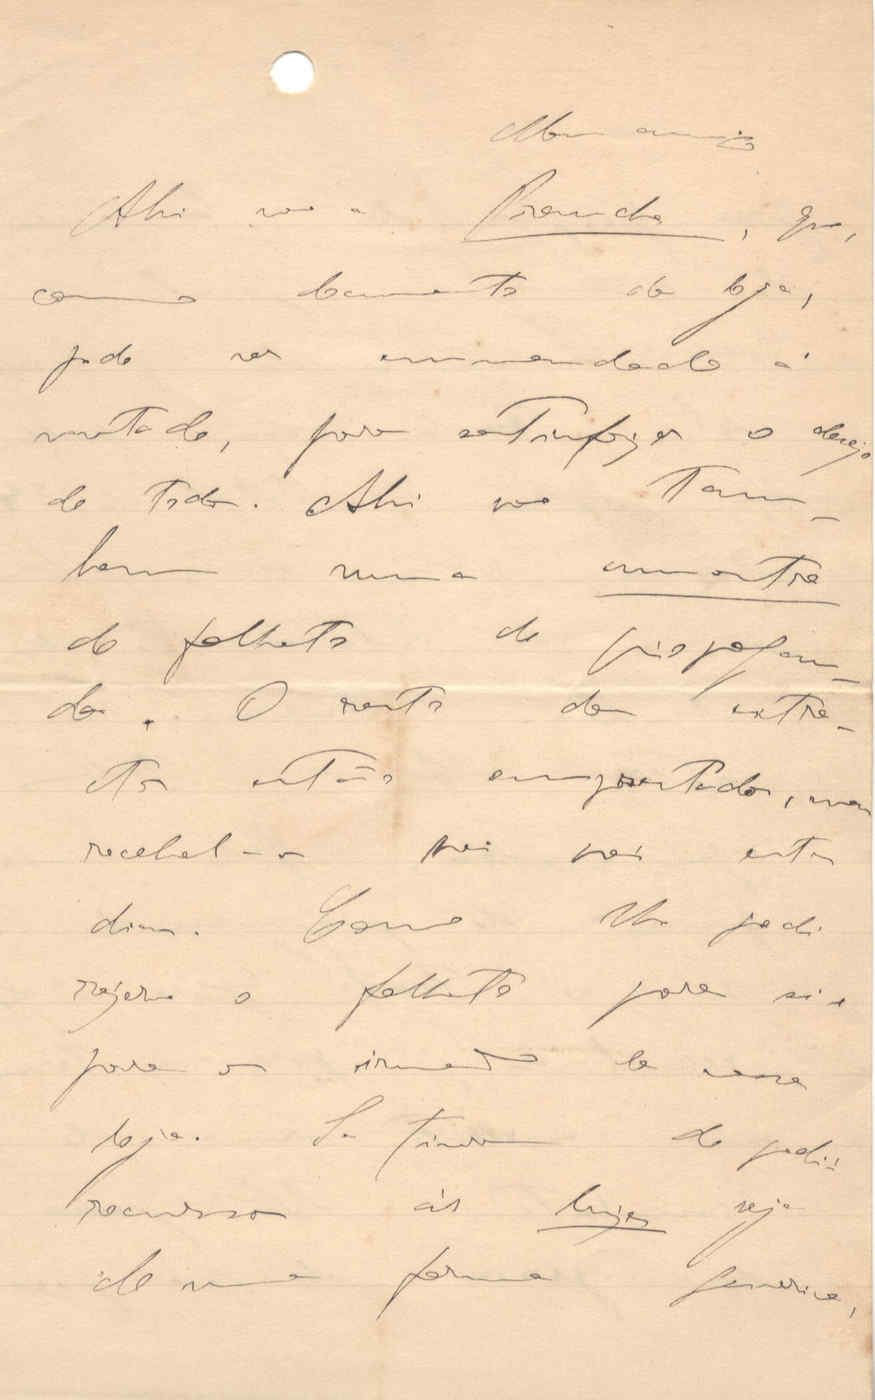 Meu amigo
Ahi vae a Prancha, que,
como documento da loja,
pode ser emmendado á
vontade, para satisfazer o desejo
de todos. Ahi vae tam-
bem uma amostra
do folheto de propagan-
da. O resto dos extra-
ctos estão emprestados, mas
recebel-os por estes
dias. Como lhe pedi
rezerve o folheto para si e
para os irmãos da nossa
loja. Se tiver de pedir
recursos ás lojas seja
de uma forma generica,